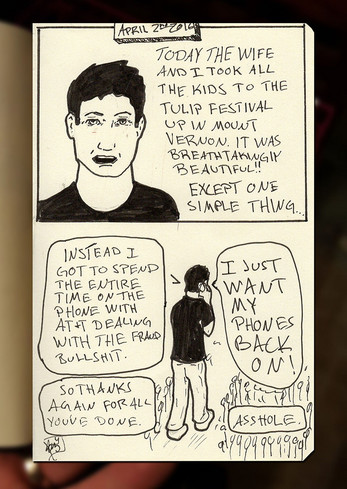 APRIL 2ND 2012
TODAY THE WIFE
AND I TOOK ALL
THE KIDS TO THE
TULIP FESTIVAL
UP IN MOUNT
VERNON. IT WAS
BREATHTAKINGLY
BEAUTIFUL!!
EXCEPT ONE
SIMPLE THING...
INSTEAD I
GOT TO SPEND
THE ENTIRE
TIME ON THE
PHONE WITH
AT+T DEALING
WITH THE FRAUD
BULLSHIT.
I JUST
WANT
MY
PHONES
BACK
ON!
SO THANKS
AGAIN FOR ALL
YOU'VE DONE.
ASSHOLE.